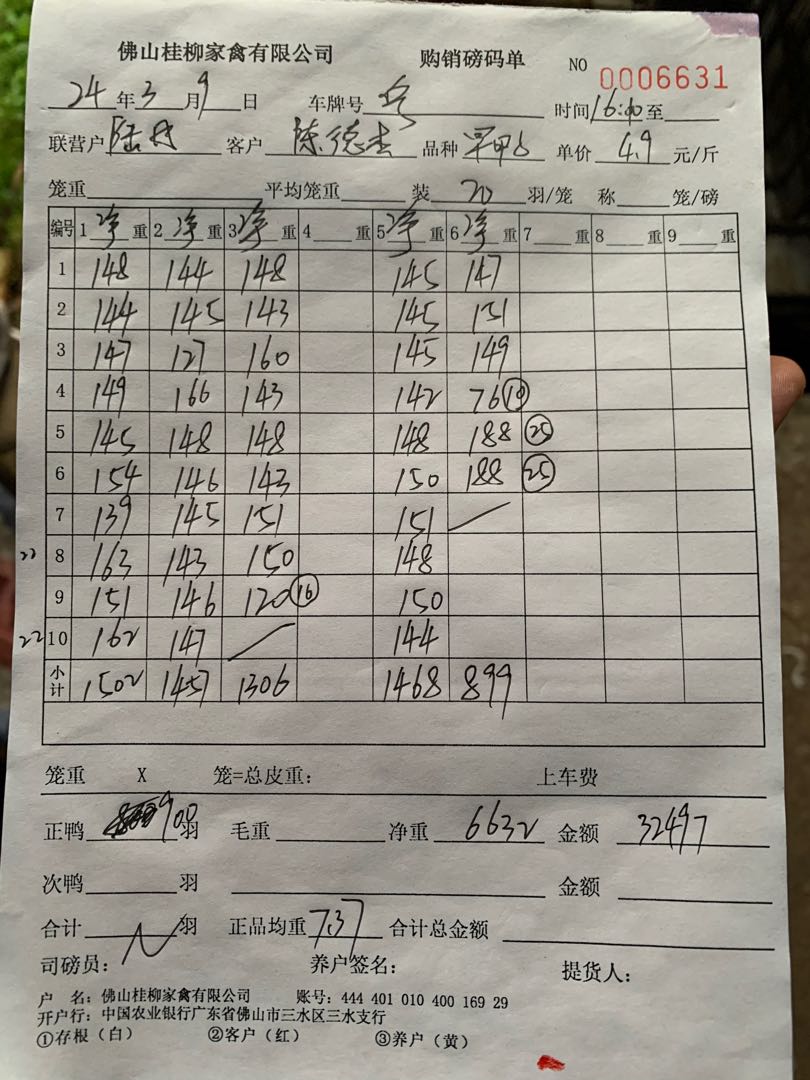 佛山桂柳家禽有限公司 购销磅码单 NO 0006631
24年3月9日 车牌号 时间16:40至
联营户 客户 陈德杰 品种 单价 4.9 元/斤
笼重 平均笼重 装 20 羽/笼 称 笼/磅
编号 1 净 重 2 净 重 3 净 重 4 重 5 净 重 6 净 重 7 重 8 重 9 重
1 148 144 148 145 147
2 144 145 143 145 151
3 147 127 160 145 149
4 149 166 143 142 76 ⑩
5 145 148 148 148 188 ㉕
6 154 146 143 150 188 ㉕
7 139 145 151 151 /
8 163 143 150 148
9 151 146 120 ⑯ 150
22 10 162 147 / 144
小计 1502 1457 1306 1468 899
笼重 X 笼=总皮重: 上车费
正鸭 900 羽 毛重 净重 6632 金额 32497
次鸭 羽 金额
合计 羽 正品均重 7.37 合计总金额
司磅员: 养户签名: 提货人:
户 名: 佛山桂柳家禽有限公司 账号: 444 401 010 400 169 29
开户行: 中国农业银行广东省佛山市三水区三水支行
①存根(白) ②客户(红) ③养户(黄)